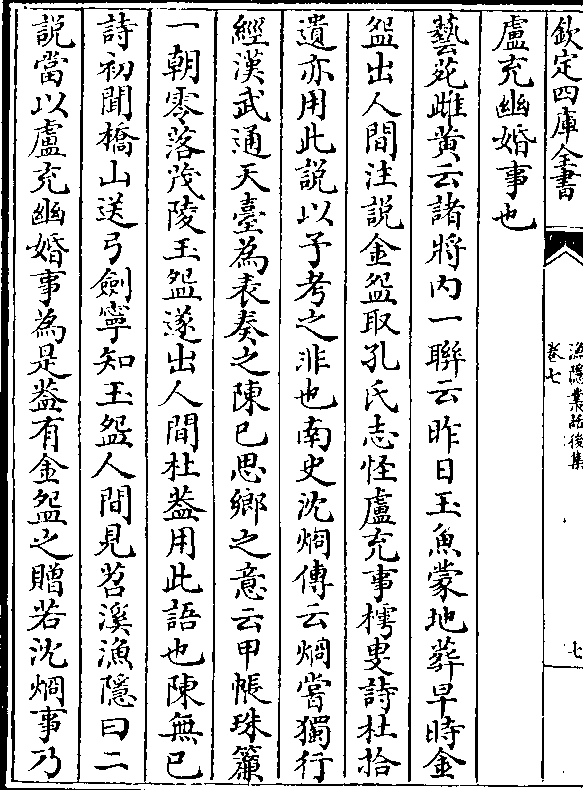 欽定四庫全書
漁隱叢話後集
卷七
七
盧充幽婚事也
藝苑雌黄云諸將内一聯云昨日玉魚蒙地葬早時金
盌出人間注説金盌取孔氏志怪盧充事樗叟詩杜拾
遺亦用此説以予考之非也南史沈烱傳云烱嘗獨行
經漢武通天臺為表奏之陳已思鄉之意云甲帳珠簾
一朝零落茂陵玉盌遂出人間杜葢用此語也陳無已
詩初聞橋山送弓劍寧知玉盌人間見苕溪漁隱曰二
説當以盧充幽婚事為是葢有金盌之贈若沈烱事乃